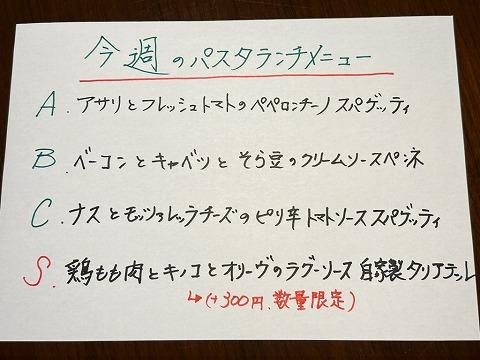 今週のパスタランチメニュー
A. アサリとフレッシュトマトのペペロンチーノ スパゲッティ
B. ベーコンとキャベツとそら豆のクリームソースペンネ
C. ナスとモッツァレッラチーズのピリ辛トマトソーススパゲッティ
S. 鶏もも肉とキノコとオリーヴのラグーソース 自家製タリアテッレ
↳(+300円、数量限定)